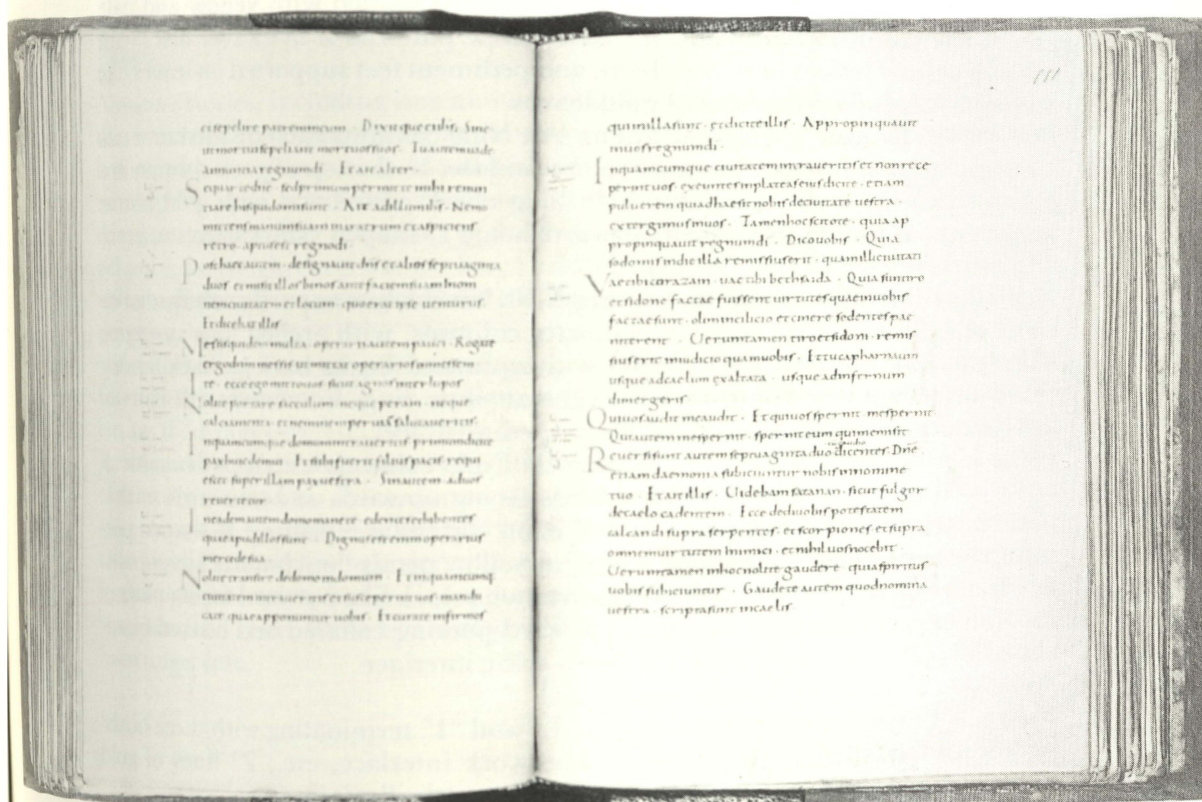 et sepelire patrem meum · Dixitque ei ihs Sine
ut mortui sepeliant mortuos suos · Tu autem uade
annuntia regnum di · Et ait alter
Sequar te dne · sed primum permitte mihi renun
tiare his qui domi sunt · Ait ad illum ihs · Nemo
mittens manum suam in aratrum et aspiciens
retro · aptus est regno di ·
Post haec autem · designauit dns et alios septuaginta
duos · et misit illos binos ante faciem suam in om
nem ciuitatem et locum · quo erat ipse uenturus
Et dicebat illis
Messis quidem multa · operarii autem pauci · Rogate
ergo dnm messis ut mittat operarios in messem
Ite · ecce ego mitto uos sicut agnos inter lupos
Nolite portare sacculum neque peram · neque
calciamenta · et neminem per uiam salutaueritis
In quamcumque domum intraueritis primum dicite
pax huic domui · Et si ibi fuerit filius pacis requi
escet super illam pax uestra · Sin autem ad uos
reuertetur
In eadem autem domo manete edentes et bibentes
quae apud illos sunt · Dignus est enim operarius
mercede sua
Nolite transire de domo in domum · Et in quamcumq
ciuitatem intraueritis et susceperint uos · mandu
cate quae apponuntur uobis · Et curate infirmos
qui in illa sunt · et dicite illis · Appropinquauit
in uos regnum di
In quamcumque ciuitatem intraueritis et non rece
perint uos · exeuntes in plateas eius dicite · etiam
puluerem qui adhaesit nobis de ciuitate uestra ·
extergimus in uos · Tamen hoc scitote · quia ap
propinquauit regnum di · Dico uobis · Quia
sodomis in die illa remissius erit · quam illi ciuitati
Vae tibi corazam · uae tibi bethsaida · Quia si in tiro
et sidone factae fuissent uirtutes quae in uobis
factae sunt · olim in cilicio et cinere sedentes pae
niterent · Uerumtamen tiro et sidoni · remis
sius erit in iudicio quam uobis · Et tu capharnaum
usque ad caelum exaltata · usque ad infernum
dimergeris
Qui uos audit me audit · Et qui uos spernit me spernit
Qui autem me spernit · spernit eum qui me misit
Reuersi sunt autem septuaginta duo cum gaudio dicentes Dne
etiam daemonia subiciuntur nobis in nomine
tuo · Et ait illis · Uidebam satanan · sicut fulgur
de caelo cadentem · Ecce dedi uobis potestatem
calcandi supra serpentes · et scorpiones et supra
omnem uirtutem inimici · et nihil uos nocebit
Uerumtamen in hoc nolite gaudere · quia spiritus
uobis subiciuntur · Gaudete autem quod nomina
uestra · scripta sunt in caelis